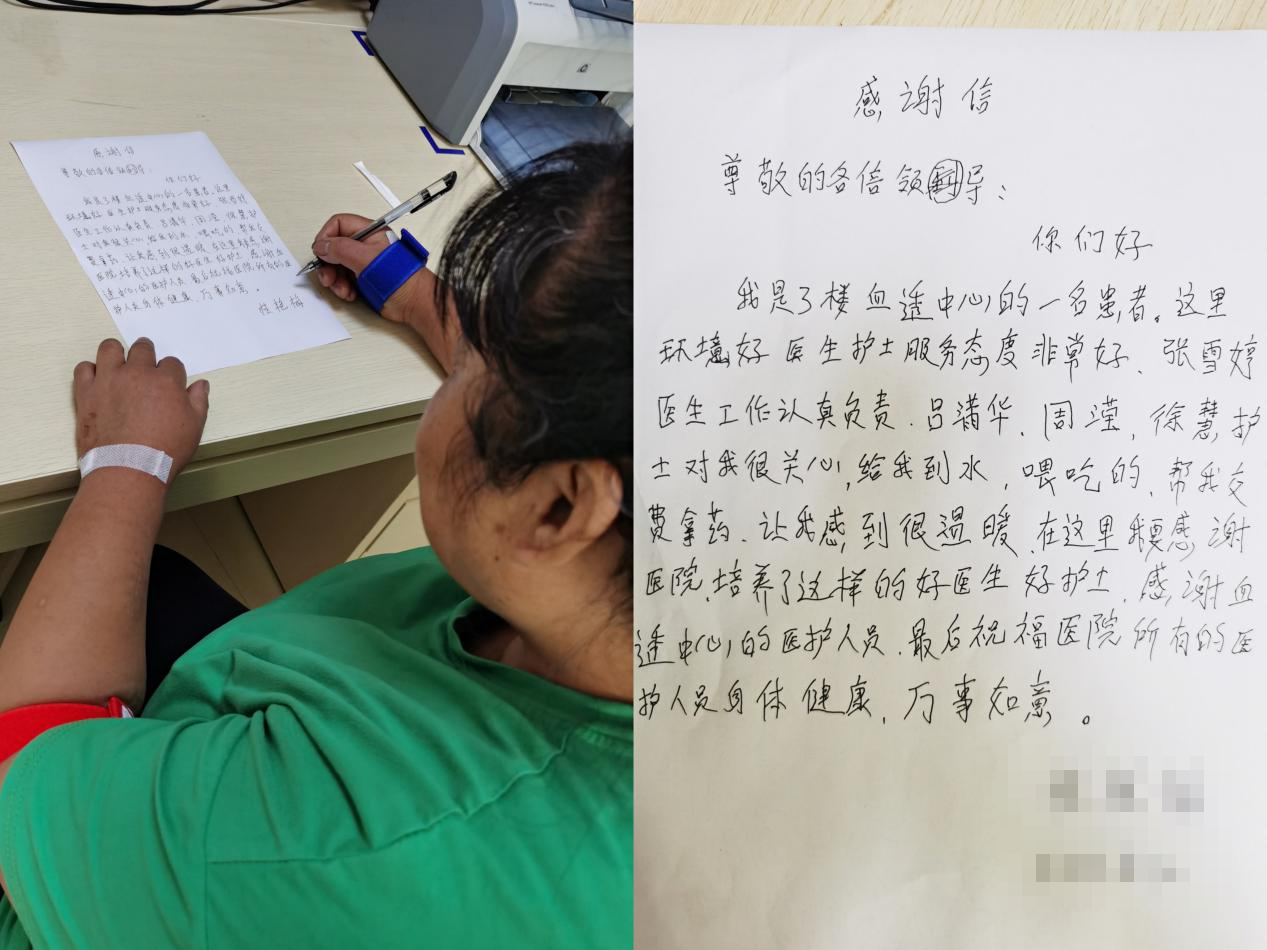 感谢信
尊敬的各信领导：
你们好
我是了楼血透中心的一名患者。这里
环境好医生护士服务态度非常好、张雪婷
医生工作认真负责、吕满华、周滢，徐慧护
士对我很关心，给我到水，喂吃的，帮我交
费拿药、让我感到很温暖、在这里我要感谢
医院、培养了这样的好医生好护士、感谢血
透中心的医护人员、最后祝福医院所有的医
护人员身体健康，万事如意。